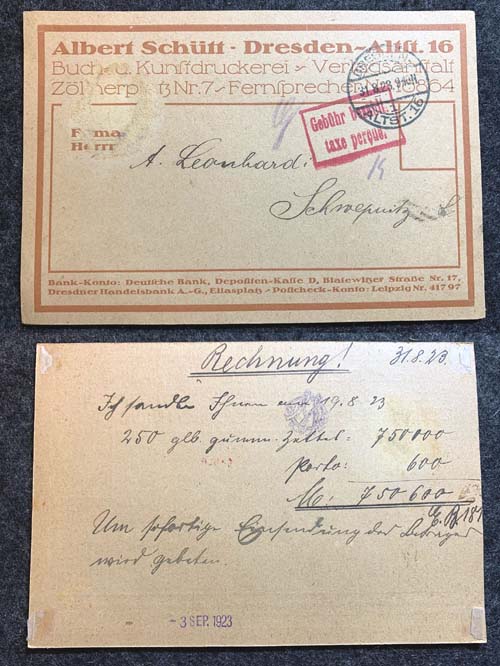 Albert Schütt · Dresden-Altst. 16
Buch- u. Kunstdruckerei - Verlagsanstalt
Zöllnerplatz Nr. 7 - Fernsprecher Nr.
31.8.23.
ALTST. 16
Gebühr bezahlt
taxe perçue.
Firma
Herrn
A. Leonhardi
Schwepnitz S.
Bank-Konto: Deutsche Bank, Depositen-Kasse D, Blasewitzer Straße Nr. 17,
Dresdner Handelsbank A.-G., Eliasplatz - Postscheck-Konto: Leipzig Nr. 41797
Rechnung!
31.8.23.
Ich sandte Ihnen am 19.8.23
250 glb. gumm. Zettel: 750 000
Porto: 600
M: 750 600
Um sofortige Einsendung des Betrages
wird gebeten.
- 3 SEP. 1923